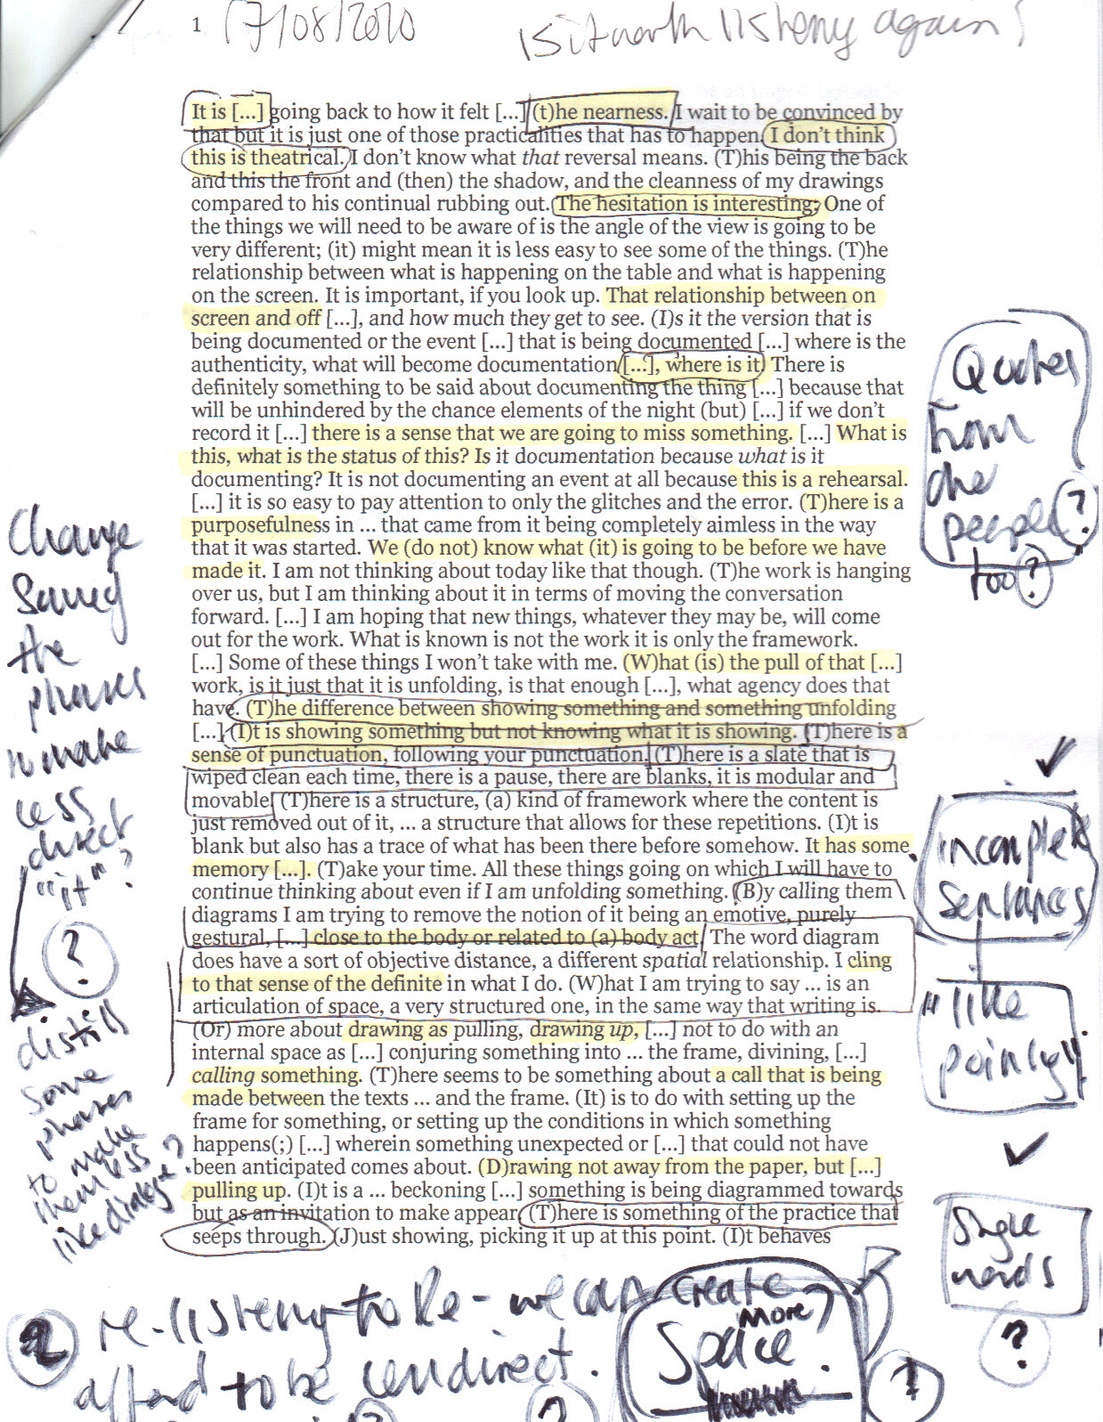 1 17/08/2010
is it worth listening again?
It is [...] going back to how it felt [...] (t)he nearness. I wait to be convinced by
that but it is just one of those practicalities that has to happen. I don't think
this is theatrical. I don't know what that reversal means. (T)his being the back
and this the front and (then) the shadow, and the cleanness of my drawings
compared to his continual rubbing out. The hesitation is interesting; One of
the things we will need to be aware of is the angle of the view is going to be
very different; (it) might mean it is less easy to see some of the things. (T)he
relationship between what is happening on the table and what is happening
on the screen. It is important, if you look up. That relationship between on
screen and off [...], and how much they get to see. (I)s it the version that is
being documented or the event [...] that is being documented [...] where is the
authenticity, what will become documentation [...], where is it? There is
definitely something to be said about documenting the thing [...] because that
will be unhindered by the chance elements of the night (but) [...] if we don't
record it [...] there is a sense that we are going to miss something. [...] What is
this, what is the status of this? Is it documentation because what is it
documenting? It is not documenting an event at all because this is a rehearsal.
[...] it is so easy to pay attention to only the glitches and the error. (T)here is a
purposefulness in ... that came from it being completely aimless in the way
that it was started. We (do not) know what (it) is going to be before we have
made it. I am not thinking about today like that though. (T)he work is hanging
over us, but I am thinking about it in terms of moving the conversation
forward. [...] I am hoping that new things, whatever they may be, will come
out for the work. What is known is not the work it is only the framework.
[...] Some of these things I won't take with me. (W)hat (is) the pull of that [...]
work, is it just that it is unfolding, is that enough [...], what agency does that
have. (T)he difference between showing something and something unfolding
[...] (I)t is showing something but not knowing what it is showing. (T)here is a
sense of punctuation, following your punctuation. (T)here is a slate that is
wiped clean each time, there is a pause, there are blanks, it is modular and
movable. (T)here is a structure, (a) kind of framework where the content is
just removed out of it, ... a structure that allows for these repetitions. (I)t is
blank but also has a trace of what has been there before somehow. It has some
memory [...]. (T)ake your time. All these things going on which I will have to
continue thinking about even if I am unfolding something. (B)y calling them
diagrams I am trying to remove the notion of it being an emotive, purely
gestural, [...] close to the body or related to (a) body act. The word diagram
does have a sort of objective distance, a different spatial relationship. I cling
to that sense of the definite in what I do. (W)hat I am trying to say ... is an
articulation of space, a very structured one, in the same way that writing is.
(Or) more about drawing as pulling, drawing up, [...] not to do with an
internal space as [...] conjuring something into ... the frame, divining, [...]
calling something. (T)here seems to be something about a call that is being
made between the texts ... and the frame. (It) is to do with setting up the
frame for something, or setting up the conditions in which something
happens(;) [...] wherein something unexpected or [...] that could not have
been anticipated comes about. (D)rawing not away from the paper, but [...]
pulling up. (I)t is a ... beckoning [...] something is being diagrammed towards
but as an invitation to make appear. (T)here is something of the practice that
seeps through. (J)ust showing, picking it up at this point. (I)t behaves
Quotes
from
the
people
too?
?
Change
the
phrases
to make
less
direct
"it"?
?
distill
some
phrases
to make
them less
like dialogue?
incomplete
sentences
"like
pointing"
Single
words
?
2 re-listening to Re- we can create
more
Space.
afford to be
?